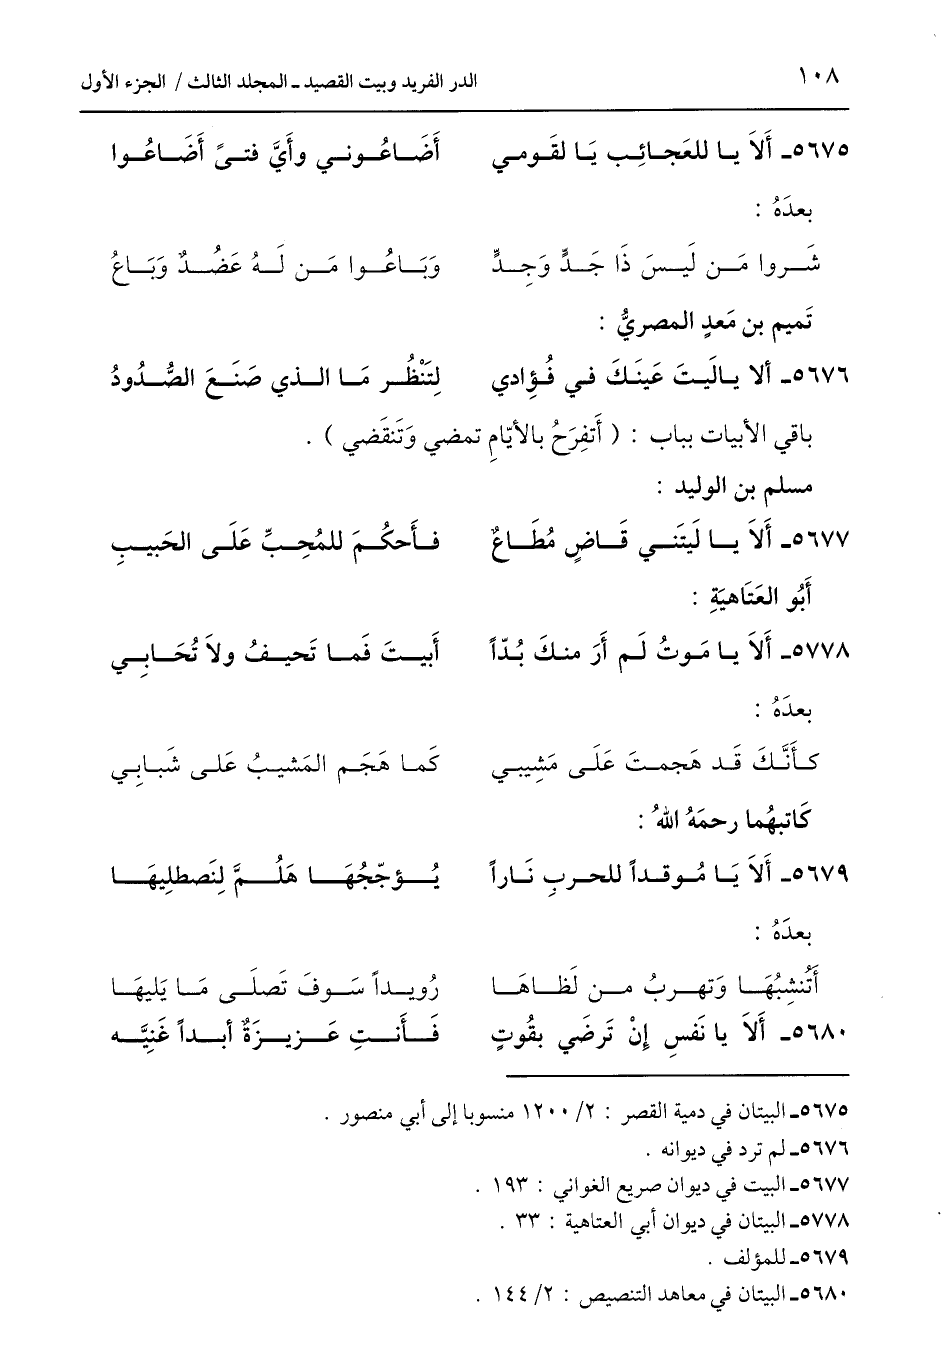 ١٠٨ الدر الفريد وبيت القصيد ـ المجلد الثالث / الجزء الأول
٥٦٧٥ـ أَلاَ يا للعَجائِب يَا لقَومي أَضَاعُوني وأَيَّ فتىً أَضَاعُوا
بعدَهُ :
شَروا مَن ليسَ ذَا جَدٍّ وَجِدٍّ وَبَاعُوا مَن لَهُ عَضُدٌ وَبَاعُ
تَميم بن مَعدٍ المصريُّ :
٥٦٧٦ـ ألا ياليَتَ عَينَكَ في فُؤادي لِتَنْظُر مَا الذي صَنَعَ الصُّدُودُ
باقي الأبيات بباب : ( أَتفِرَحُ بالأيّامِ تمضي وَتَنقَضي ) .
مسلم بن الوليد :
٥٦٧٧ـ أَلاَ يا لَيتَني قَاضٍ مُطَاعٌ فأَحكُمَ للمُحِبِّ عَلَى الحَبيبِ
أَبُو العَتَاهيَةِ :
٥٧٧٨ـ أَلاَ يا مَوتُ لَم أرَ منكَ بُدّاً أَبيتَ فَما تَحيفُ ولاَ تُحَابِي
بعدَهُ :
كأَنَّكَ قَد هَجمتَ عَلَى مَشِيبي كَما هَجَم المَشيبُ عَلى شَبابِي
كَاتبهُما رحمَهُ اللهُ :
٥٦٧٩ـ أَلاَ يَا مُوقداً للحربِ نَاراً يُؤجّجُهَا هَلُمَّ لِنَصطلِيهَا
بعدَهُ :
أَتُنشبُهَا وَتهربُ من لَظَاهَا رُويداً سَوفَ تَصلَى مَا يَليهَا
٥٦٨٠ـ ألاَ يا نَفسِ إنْ تَرضَي بقُوتٍ فَأَنتِ عَزيزَةٌ أبداً غَنِيَّه
٥٦٧٥ـ البيتان في دمية القصر : ٢/ ١٢٠٠ منسوبا إلى أبي منصور .
٥٦٧٦ـ لم ترد في ديوانه .
٥٦٧٧ـ البيت في ديوان صريع الغواني : ١٩٣ .
٥٧٧٨ـ البيتان في ديوان أبي العتاهية : ٣٣ .
٥٦٧٩ـ للمؤلف .
٥٦٨٠ـ البيتان في معاهد التنصيص : ٢/ ١٤٤ .